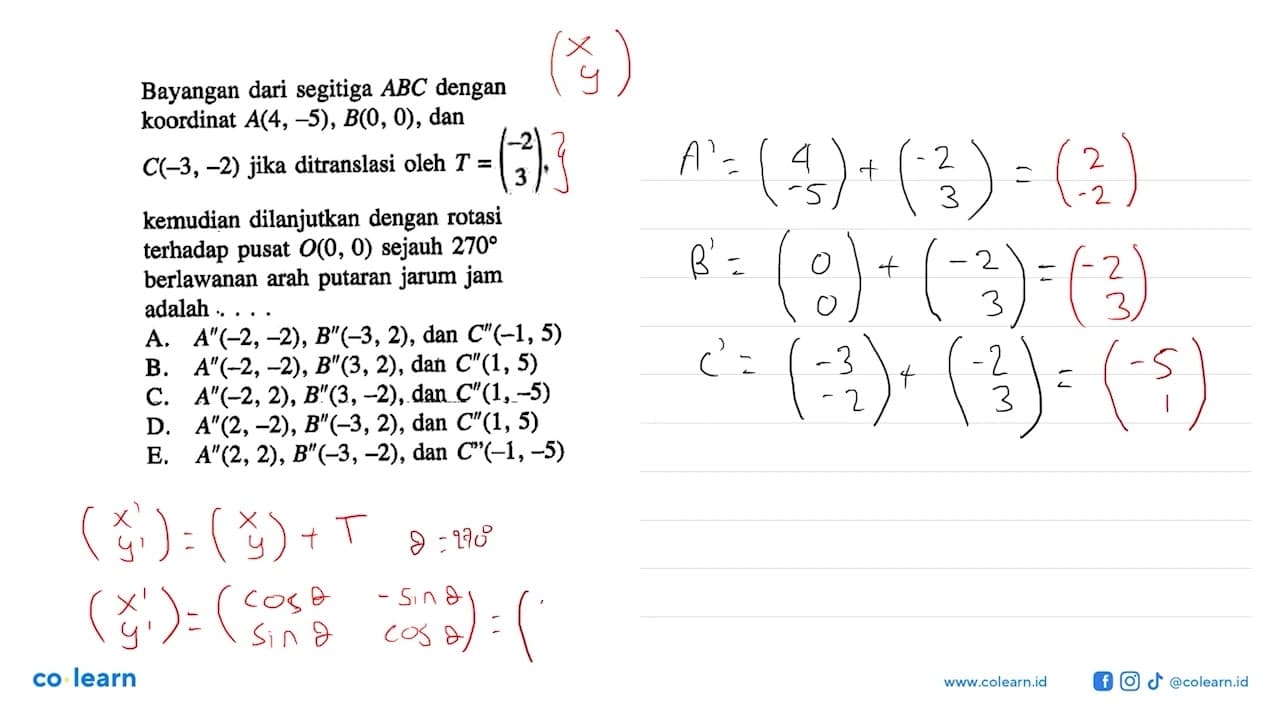 Bayangan dari segitiga ABC dengan
koordinat A(4, –5), B(0, 0), dan
C(–3, –2) jika ditranslasi oleh T = (–2 3),
kemudian dilanjutkan dengan rotasi
terhadap pusat O(0, 0) sejauh 270°
berlawanan arah putaran jarum jam
adalah . . . .
A. A"(–2, –2), B"(–3, 2), dan C"(–1, 5)
B. A"(–2, –2), B"(3, 2), dan C"(1, 5)
C. A"(–2, 2), B"(3, –2), dan C"(1, –5)
D. A"(2, –2), B"(–3, 2), dan C"(1, 5)
E. A"(2, 2), B"(–3, –2), dan C"(–1, –5)
(x y)
(x' y') = (x y) + T θ = 270°
(x' y') = (cos θ -sin θ sin θ cos θ) = (
A' = (4 -5) + (-2 3) = (2 -2)
B' = (0 0) + (-2 3) = (-2 3)
C' = (-3 -2) + (-2 3) = (-5 1)
co learn
www.colearn.id
@colearn.id